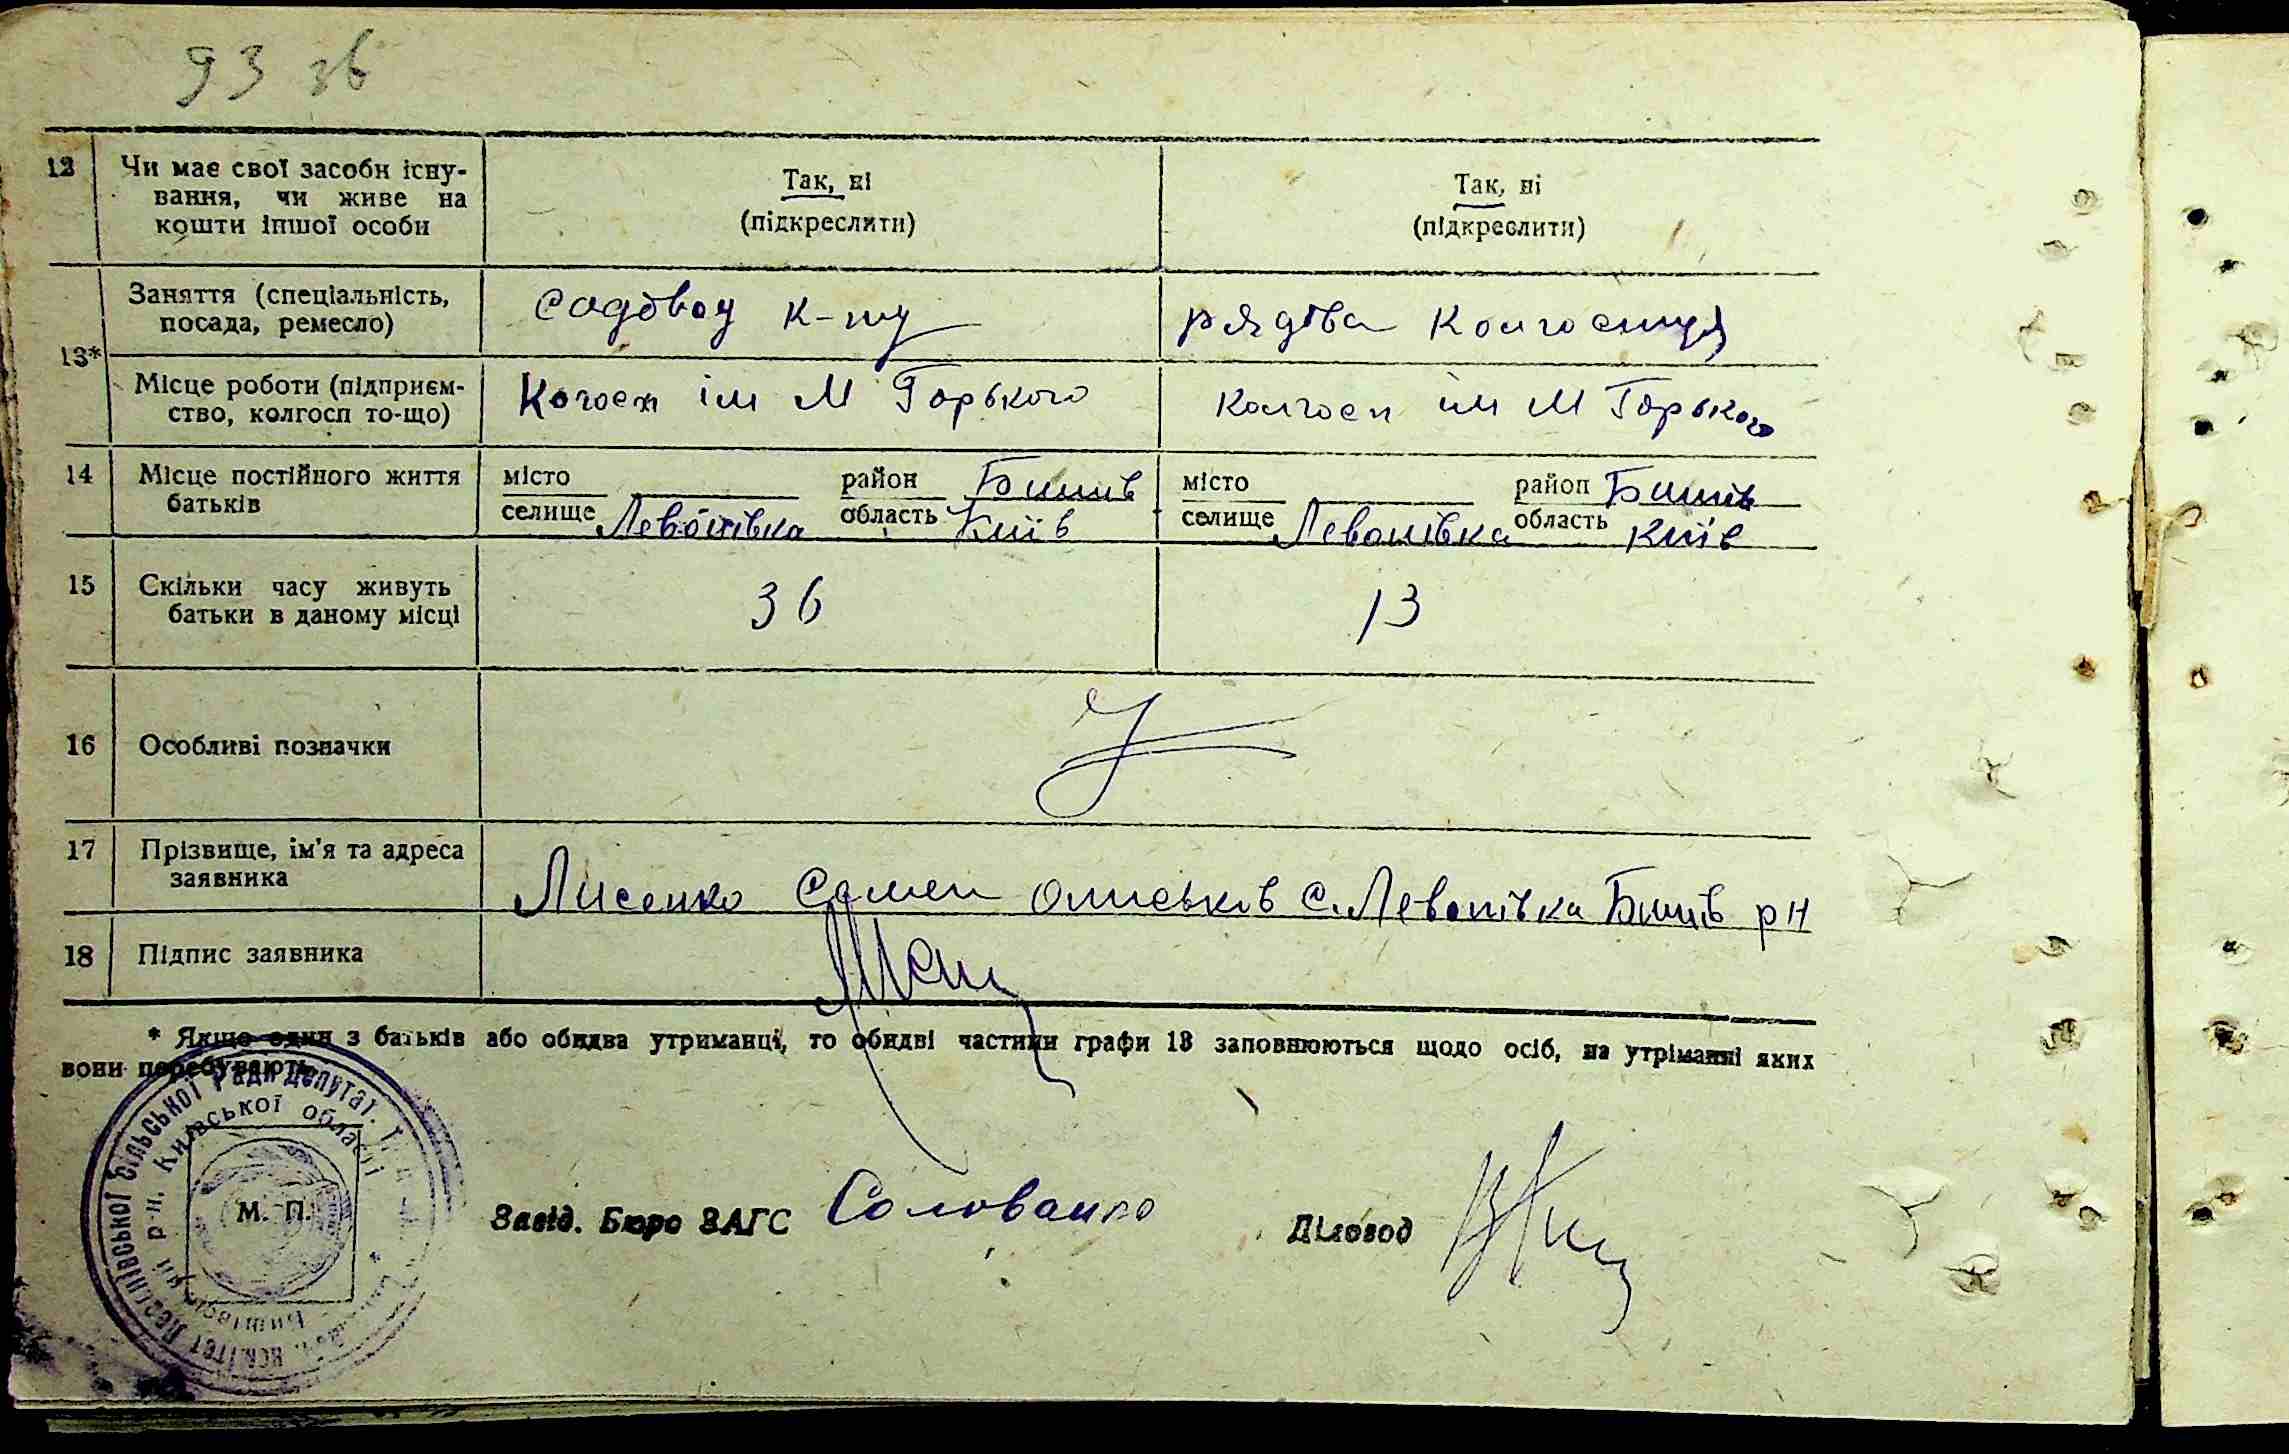 93 зв
12 Чи має свої засоби існу-
вання, чи живе на
кошти іншої особи
Так, ні
(підкреслити)
Так, ні
(підкреслити)
13*
Заняття (спеціальність,
посада, ремесло)
садовод к-пу
рядова колгоспниця
Місце роботи (підприєм-
ство, колгосп то-що)
Когосп ім М Горького
колгосп ім М Горького
14 Місце постійного життя
батьків
місто район Бишів
селище Левонівка область Київ
місто район Бишів
селище Левонівка область Київ
15 Скільки часу живуть
батьки в даному місці
36
13
16 Особливі позначки
17 Прізвище, ім'я та адреса
заявника
Лисенко Семен с. Левонівка Бишів рн
18 Підпис заявника
* Якщо один з батьків або обидва утриманці, то обидві частини графи 13 заповнюються щодо осіб, на утріманні яких
вони перебувають.
сільської Ради Депутат.
р-н. Київської області
М. П.
Завід. Бюро ЗАГС
Діловод